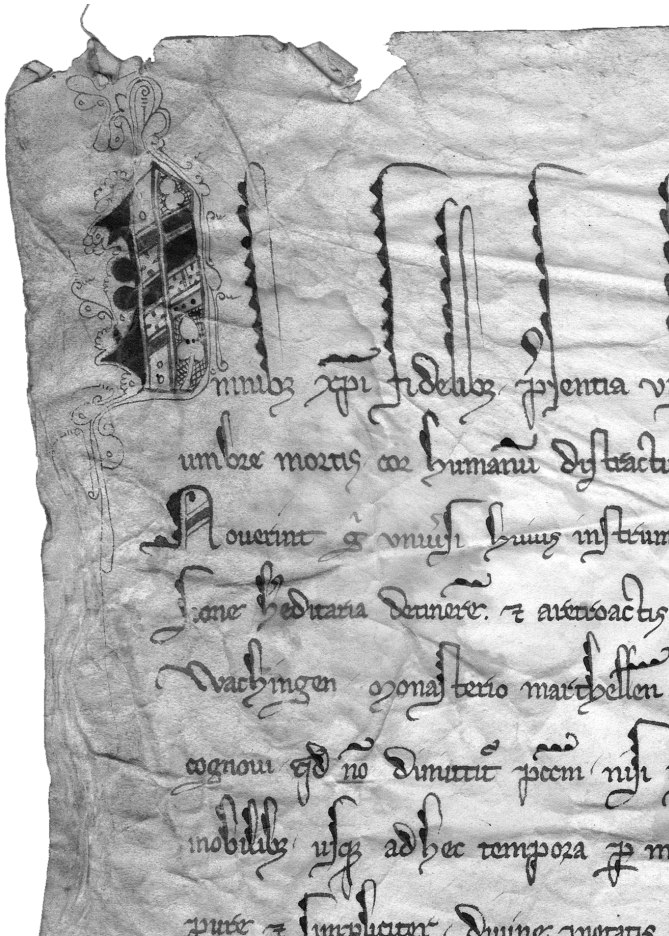 Omnibꝫ xp̅i fidelibꝫ p̅sentia
umbre mortis cor humanū distractu
Noverint g̊ vniu̅si huius instrum
hereditaria detinere. ⁊ aretroactis
Wachingen monasterio marthellen
cognoui qd n̅o dimittit̅ pcc̅m nisi
mobilibꝫ usqꝫ ad hec tempora p m
pure ⁊ simpliciter diuine pietatis